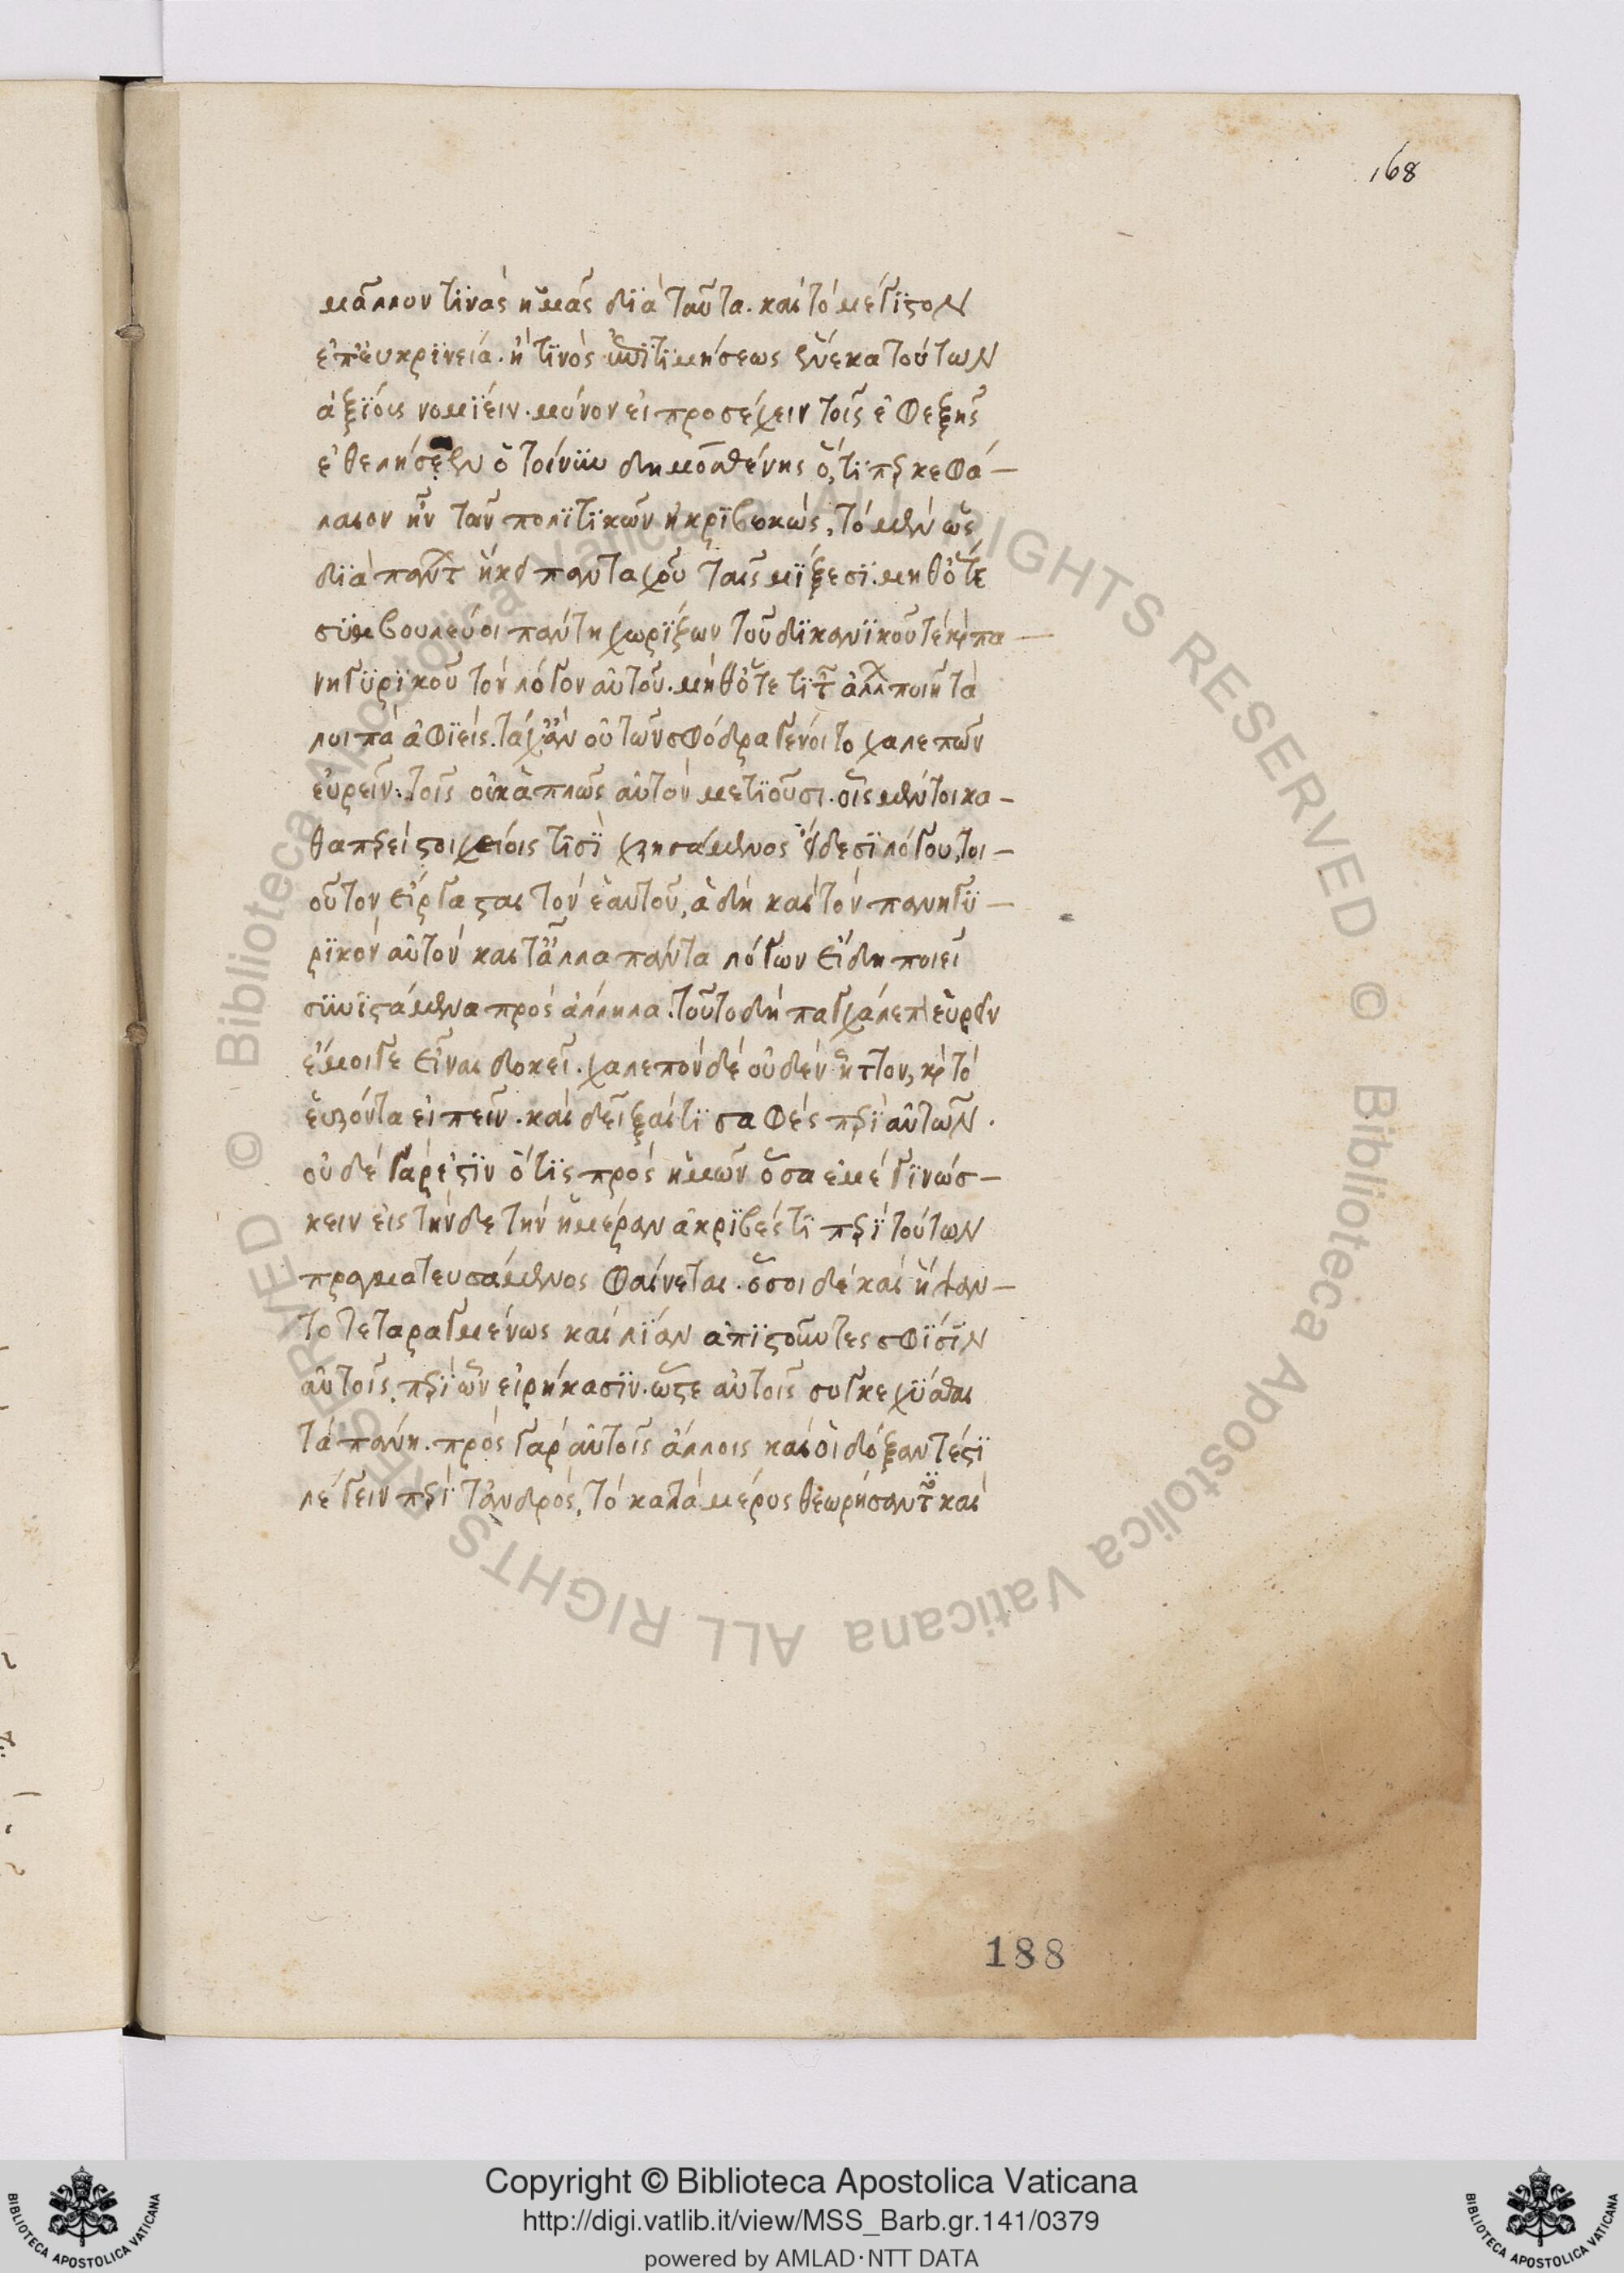 168
μᾶλλον τινὰς ἡμᾶς διὰ ταῦτα. καὶ τὸ μέγιστον
ἐπ' εὐκρινεία. ἤ τινος ἐπιτιμήσεως ἕνεκα τούτων
ἀξίοις νομίειν. μόνον εἰ προσέχειν τοῖς ἐφεξῆς
ὁ τοίνυν δημοσθένης ὅ, τι περ κεφά-
λαιον ἦν τῶν πολιτικῶν ἠκριβωκώς, τὸ μὲν ὡς
διὰ παντ ἥκει πανταχοῦ ταῖς μίξεσι. μηθ' ὅτε
συμβουλεύοι πάντη χωρίζων τοῦ δικανικοῦ τὲ καὶ πα-
νηγυρικοῦ τὸν λόγον αὐτοῦ. μήθ' ὅτε τι τῶν ἄλλ ποιῆ τὰ
λοιπὰ ἀφιείς. τάχ' ἂν οὐ τῶν σφόδρα γένοιτο χαλεπῶν
εὑρεῖν. τοῖς οὐκ ἁπλῶς αὐτὸν μετιοῦσι. οἷς μέντοι κα-
θαπερεὶ στοιχείοις τισὶ χρησάμενος εἴδεσι λόγου, τοι-
οῦτον εἴργασται τὸν ἑαυτοῦ, ἃ δὴ καὶ τὸν πανηγυ-
ρικὸν αὐτὸν καὶ τἄλλα πάντα λόγων εἴδη ποιεῖ
συνιστάμενα πρὸς ἄλληλα. τοῦτο δὴ παγχάλεπ εὑρεῖν
ἔμοιγε εἶναι δοκεῖ. χαλεπὸν δὲ οὐδὲν ἧττον, καὶ τὸ
εὑρόντα εἰπεῖν. καὶ δεῖξαί τι σαφὲς περὶ αὐτῶν.
οὐδὲ γάρ ἐστιν ὅτις πρὸς ἡμῶν ὅσα ἐμὲ γινώσ-
κειν εἰς τήνδε τὴν ἡμέραν ἀκριβές τι περὶ τούτων
πραγματευσάμενος φαίνεται. ὅσοι δὲ καὶ ἥψαν-
το τεταραγμένως καὶ λίαν ἀπιστοῦντες σφίσιν
αὐτοῖς περὶ ὧν εἰρήκασιν. ὥστε αὐτοῖς συγκεχύσθαι
τὰ πάντη. πρὸς γὰρ αὐτοῖς ἄλλοις καὶ οἱ δόξαντές τι
λέγειν περὶ τἀνδρός, τὸ κατὰ μέρος θεωρήσαντ καὶ
188
© Biblioteca Apostolica Vaticana ALL RIGHTS RESERVED © Biblioteca Apostolica Vaticana ALL RIGHTS RESERVED
Copyright © Biblioteca Apostolica Vaticana
http://digi.vatlib.it/view/MSS_Barb.gr.141/0379
powered by AMLAD·NTT DATA
BIBLIOTECA APOSTOLICA VATICANA
BIBLIOTECA APOSTOLICA VATICANA